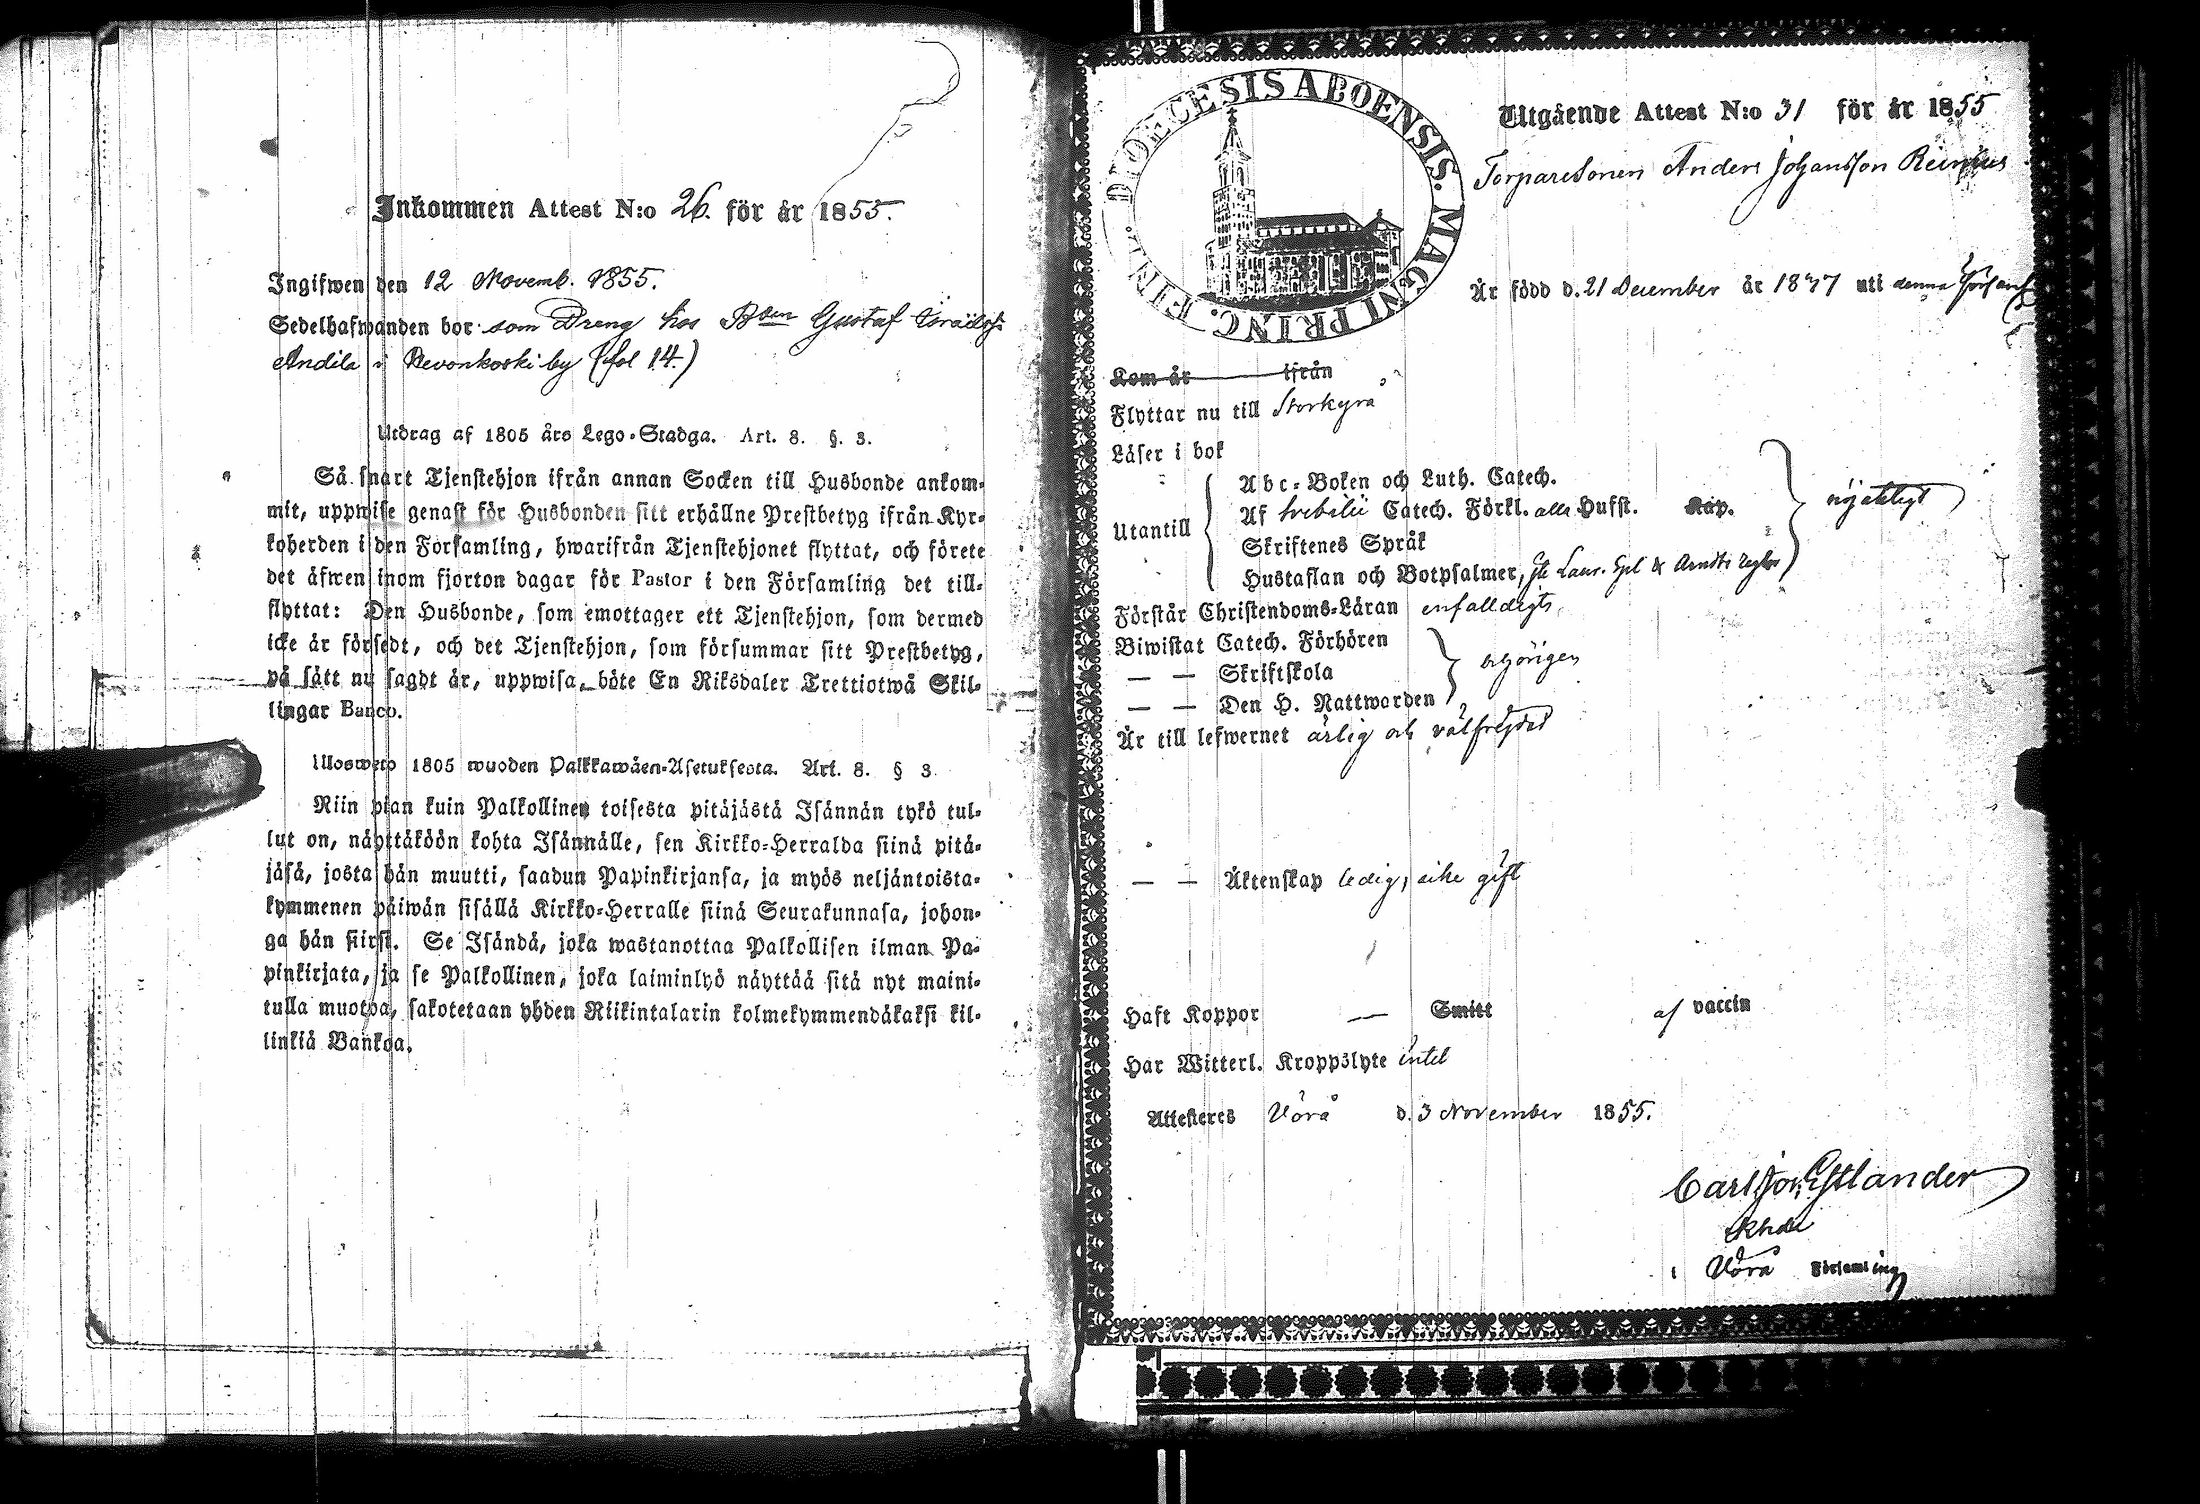 Inkommen Attest N:o 26. för år 1855.
Ingifwen den 12 Novemb. 1855.
Sedelhafwanden bor som Dreng hos Bden Gustaf Israelss:
Andila i Revonkoski by (fol 14.)
Utdrag af 1805 års Lego-Stadga. Art. 8. §. 3.
Så snart Tjenstehjon ifrån annan Socken till Husbonde ankom-
mit, uppwise genast för Husbonden sitt erhållne Prestbetyg ifrån Kyr-
koherden i den Församling, hwarifrån Tjenstehjonet flyttat, och förete
det äfwen inom fjorton dagar för Pastor i den Församling det till-
flyttat: Den Husbonde, som emottager ett Tjenstehjon, som dermed
icke är försedt, och det Tjenstehjon, som försummar sitt Prestbetyg,
på sätt nu sagdt är, uppwisa, böte En Riksdaler Trettiotwå Skil-
lingar Banco.
Ulosweto 1805 wuoden Palkkawäen-Asetuksesta. Art. 8. § 3.
Niin pian kuin Palkollinen toisesta pitäjästä Isännän tykö tul-
lut on, näyttäköön kohta Isännälle, sen Kirkko-Herralda siinä pitä-
jäsä, josta hän muutti, saadun Papinkirjansa, ja myös neljäntoista-
kymmenen päiwän sisällä Kirkko-Herralle siinä Seurakunnasa, johon-
ga hän siirsi. Se Isändä, joka wastanottaa Palkollisen ilman Pa-
pinkirjata, ja se Palkollinen, joka laiminlyö näyttää sitä nyt maini-
tulla muotoa, sakotetaan yhden Riikintalarin kolmekymmendäkaksi kil-
linkiä Bankoa.
DIOECESIS ABOENSIS. MAGNI PRINC. FINL.
Utgående Attest N:o 31 för år 1855
Torparesonen Anders Johansson
Är född d. 21 December år 18 7 uti denna Förs
Kom år ifrån
Flyttar nu till Storkyrå
Läser i bok
Utantill
Abc-Boken och Luth. Catech.
Af Svebilii Catech. Förkl. alla Hufst. Kap.
Skriftenes Språk
Hustaflan och Botpsalmer,
nöjaktligt
Förstår Christendoms-Läran enfalldigts
Biwistat Catech. Förhören
— — Skriftskola
— — Den H. Nattwarden
behörigen
Är till lefwernet ärlig och välfrejdad
— — Äktenskap ledig, icke gift
Haft Koppor — Smitt af vaccin
Har Witterl. Kroppslyte intet
Attesteres Vörå d. 3 November 1855.
Carl Joh. Estlander
Khde
i Vörå Församling